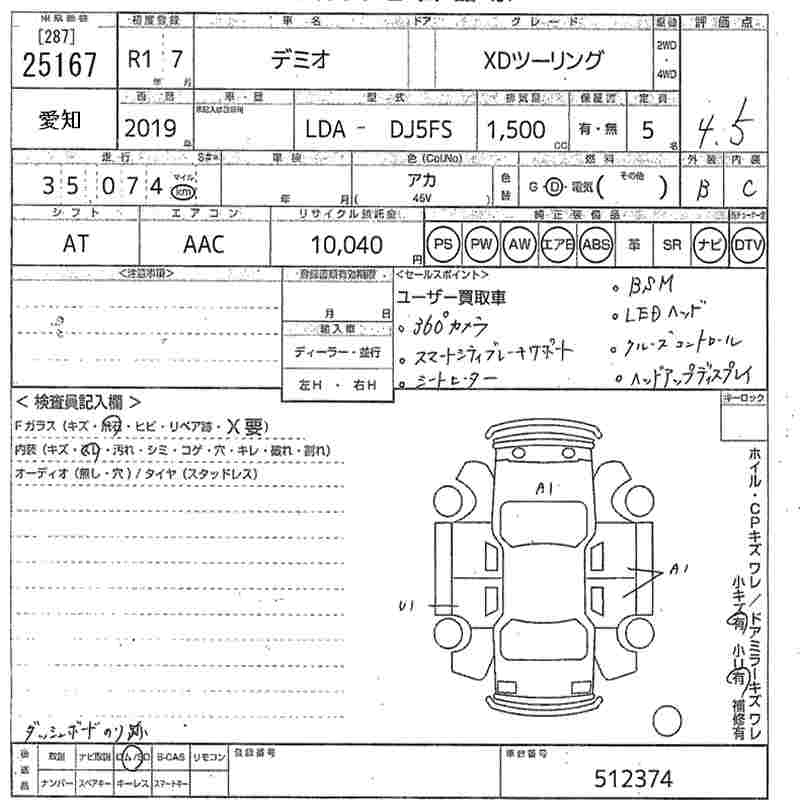 初度登録 車名 ドア グレード 駆動 評価点
[287]
25167 R1 7 デミオ XDツーリング 2WD・4WD
年 月
愛知 西暦 車歴 型式 排気量 保証書 定員 4.5
2019 年 LDA - DJ5FS 1,500 CC 有・無 5 名
走行 S#= 車検 色(Col,No) 燃料 外装 内装
35,074 マイル km 年 月 アカ 色替 G・D・電気( その他 ) B C
( 45V )
シフト エアコン リサイクル預託金 純正装備品
AT AAC 10,040 円 PS PW AW エアB ABS 革 SR ナビ DTV
<注意事項> 登録書類有効期限 <セールスポイント>
月 日 ユーザー買取車
輸入車 ディーラー・並行
左H・右H
。360°カメラ
。スマートシティブレーキサポート
。シートヒーター
。BSM
。LEDヘッド
。クルーズコントロール
。ヘッドアップディスプレイ
キーロック
<検査員記入欄>
Fガラス(キズ・飛石・ヒビ・リペア跡・X要)
内装(キズ・スレ・汚れ・シミ・コゲ・穴・キレ・破れ・割れ)
オーディオ(無し・穴)/タイヤ(スタッドレス)
A1
A1
U1
ホイル・CPキズワレ/ドアミラーキズワレ
小キズ有 小U有 補修有
ダッシュボードのり跡
後送品 取説 ナビ取説 ロム/SD B-CAS リモコン 登録番号 車台番号
ナンバー スペアキー キーレス スマートキー 512374